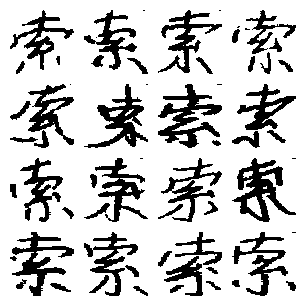 索索索索
索索索索
索索索索
索索索索